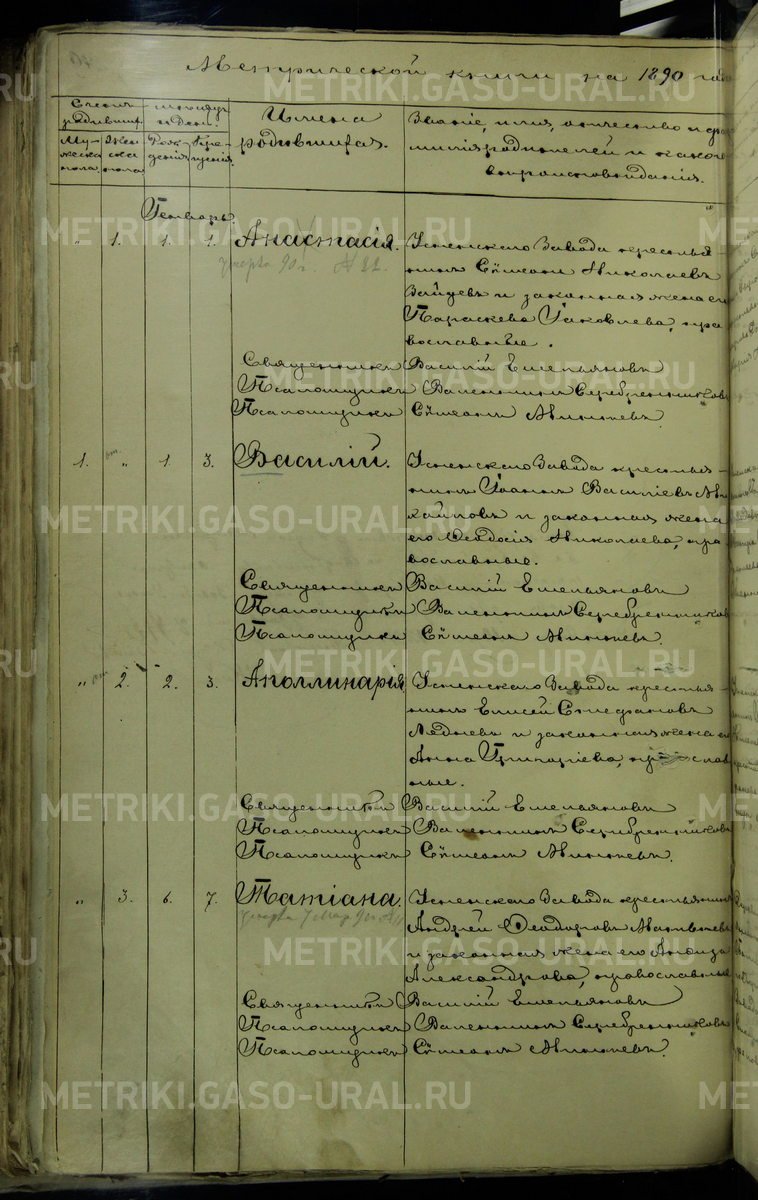 Метрической книги на 1890 годъ
Счетъ родивших.
Мѣсяцъ и День.
Имена родившихся.
Званіе, имя, отчество и фа
милія родителей и какого
вѣроисповѣданія.
Му-
жеска
пола.
Жен
ска
пола.
Рож-
денія.
Кре-
щенія.
Генварь.
„ 1. 1. 1. Анастасія. Успенскаго Завода крестья-
умерла 90 г. №
нинъ Сѵмеонъ Николаевъ
Зайцевъ и законная жена его
Параскева Іаковлева, пра
вославные.
Священникъ Василій Емельяновъ
Псаломщикъ Валентинъ Серебренниковъ
Псаломщикъ Сѵмеонъ
1. „ 1. 3. Василій. Успенскаго Завода крестья-
нинъ Іоаннъ Василіевъ Ми
хайловъ и законная жена
его Ѳеодосія Николаева, пра-
вославные.
Священникъ Василій Емельяновъ
Псаломщикъ Валентинъ Серебренниковъ
Псаломщикъ Сѵмеонъ
„ 2. 2. 3. Аполлинарія Успенскаго Завода крестья-
нинъ Елисей Стефановъ
Ледневъ и законная жена его
Анна Григоріева, православ
ные.
Священникъ Василій Емельяновъ
Псаломщикъ Валентинъ Серебренниковъ
Псаломщикъ Сѵмеонъ
„ 3. 6. 7. Татіана. Успенскаго Завода крестьянинъ
умерла 7 Мар. 90 г.
Андрей Ѳеодоровъ
и законная жена его
Александрова, православные
Священникъ Василій Емельяновъ
Псаломщикъ Валентинъ Серебренниковъ
Псаломщикъ Сѵмеонъ
METRIKI.GASO-URAL.RU